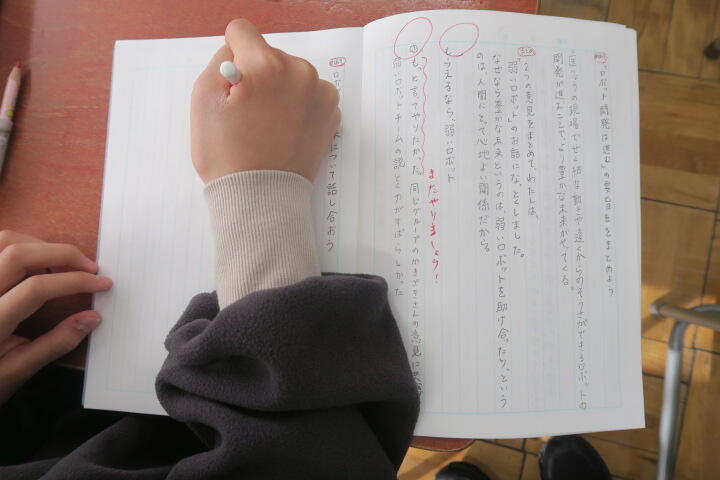 めあて 「ロボット開発は進む」の要旨をまとめよう
医りょうの現場でせん細な動きや遠くからのそうさができるロボットの
開発が進むことでより豊かな未来がやってくる。
まとめ 2つの意見をまとめて、わたしは、
「弱いロボット」のお話になっとくしました。
なぜなら豊かな未来というのは、弱いロボットを助け合ったり、という
のは、人間にとって心地よい関係だから。
なら、弱いロボット
またやりましょう!
のも、と言てやりたかった。同じグループのかきざきさんの意見に
弱いロボットチームの説とく力がすばらしかった
めあて ロボ について話し合おう